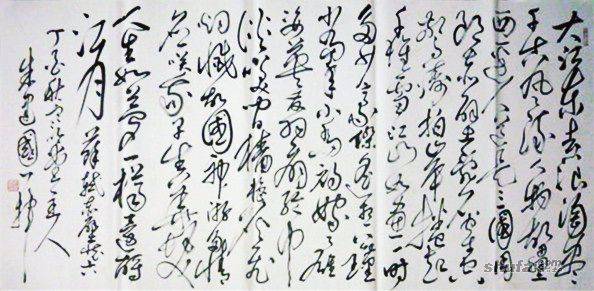 大江东去浪淘尽
千古风流人物故垒
西边人道是三國周
郎赤壁乱石穿空
惊涛拍岸卷起
千堆雪江山如画一时
多少豪傑遥想公瑾
当年小乔初嫁了雄
姿英发羽扇纶巾
谈笑间樯橹灰飞
烟灭故國神游多情
应笑我早生华发
人生如梦一樽还酹
江月 苏轼赤壁怀古
丁亥秋主人
朱建國书